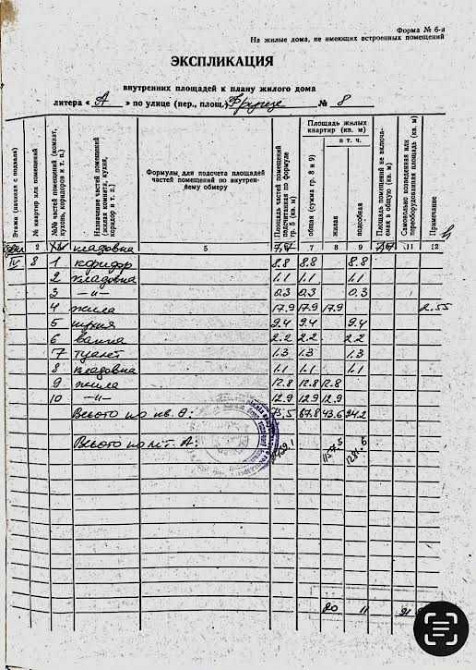 Форма № 6-а
На жилые дома, не имеющих встроенных помещений
ЭКСПЛИКАЦИЯ
внутренних площадей к плану жилого дома
литера « А » по улице (пер., площ.) № 8
Этажи (начиная с подвала)
№ квартир или помещений
№№ частей помещений (комнат, кухонь, коридоров и т. п.)
Назначение частей помещений (жилая комната, кухня, коридор и т. п.)
Формулы для подсчета площадей частей помещений по внутреннему обмеру
Площадь частей помещений подсчитанная по формуле гр. 5 (кв. м)
Площадь жилых квартир (кв. м)
общая (сумма гр. 8 и 9)
в т. ч.
жилая
подсобная
Площадь помещений не включаемая в общую (кв. м)
Самовольно возведенная или переоборудованная площадь (кв. м)
Примечание
2 кладовка 5 7 8 9 11 12
IV 8 1 коридор 8.8 8.8 8.8
2 кладовка 1.1 1.1 1.1
3 -"- 0.3 0.3 0.3
4 жила 17.9 17.9 17.9 2.55
5 кухня 9.4 9.4 9.4
6 ванна 2.2 2.2 2.2
7 туалет 1.3 1.3 1.3
8 кладовка 1.1 1.1 1.1
9 жила 12.8 12.8 12.8
10 -"- 12.9 12.9 12.9
Всього по кв. 8: 67.8 43.6 24.2
Всього по літ. А:
20 11 91